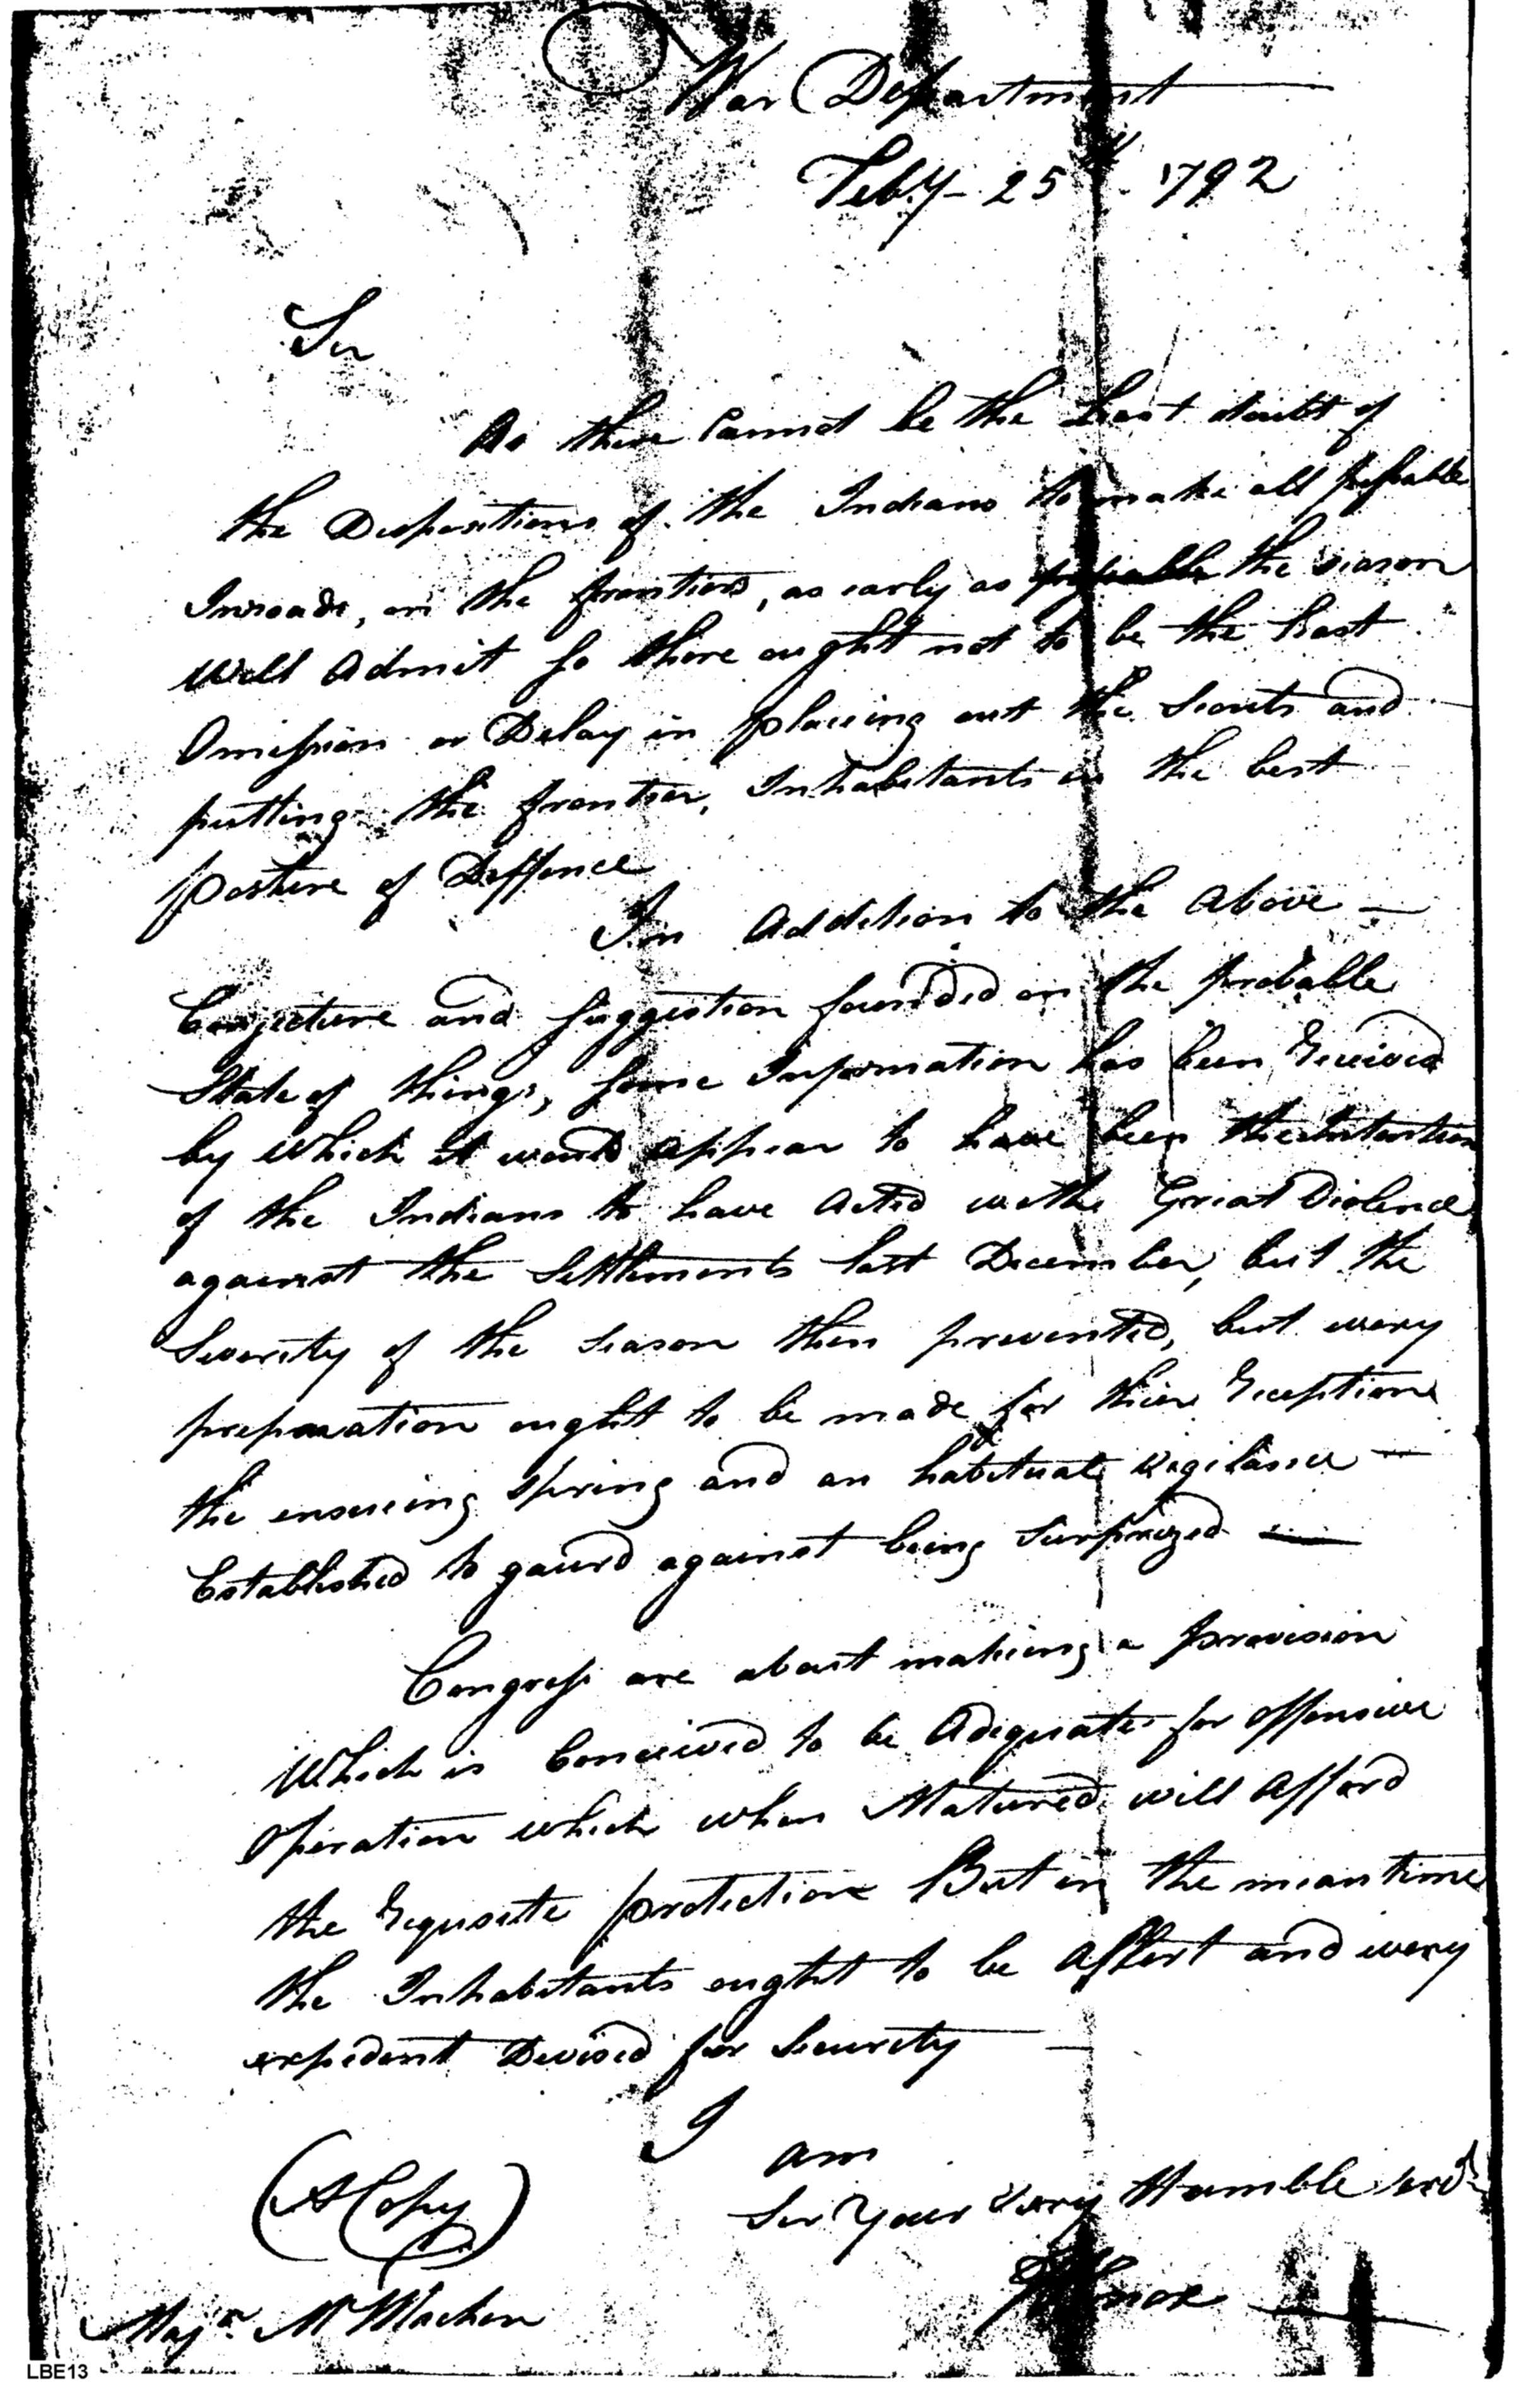 War Department
Feby 25th 1792
Sir
As there Cannot be the least doubt of
the Dispositions of the Indians to make all possable
Inroads, on the frontiers, as early as possable the season
will admit so there ought not to be the least
Omission or Delay in placing out the Scouts and
putting the frontier, Inhabitants in the best
posture of Deffence
In Addition to the above
Conjecture and suggestion founded on the probable
State of things, some Information has been Received
by which it would appear to have been the Intention
of the Indians to have acted withe Great Violence
against the Settlements last December, but the
Severity of the season then prevented, but every
preparation ought to be made for thier Reception
the ensueing spring and an habitual vigilance
Established to gaurd against being surprized
Congress are about making a provision
Which is Conceived to be Adequate for offensive
operation which when Matured will afford
the Requisite protection But in the mean time
the Inhabitants ought to be allert and every
expedent Devised for Security
I am
Sir Your Very Humble servt
(A Copy)
HKnox
Majr McMachon
LBE13